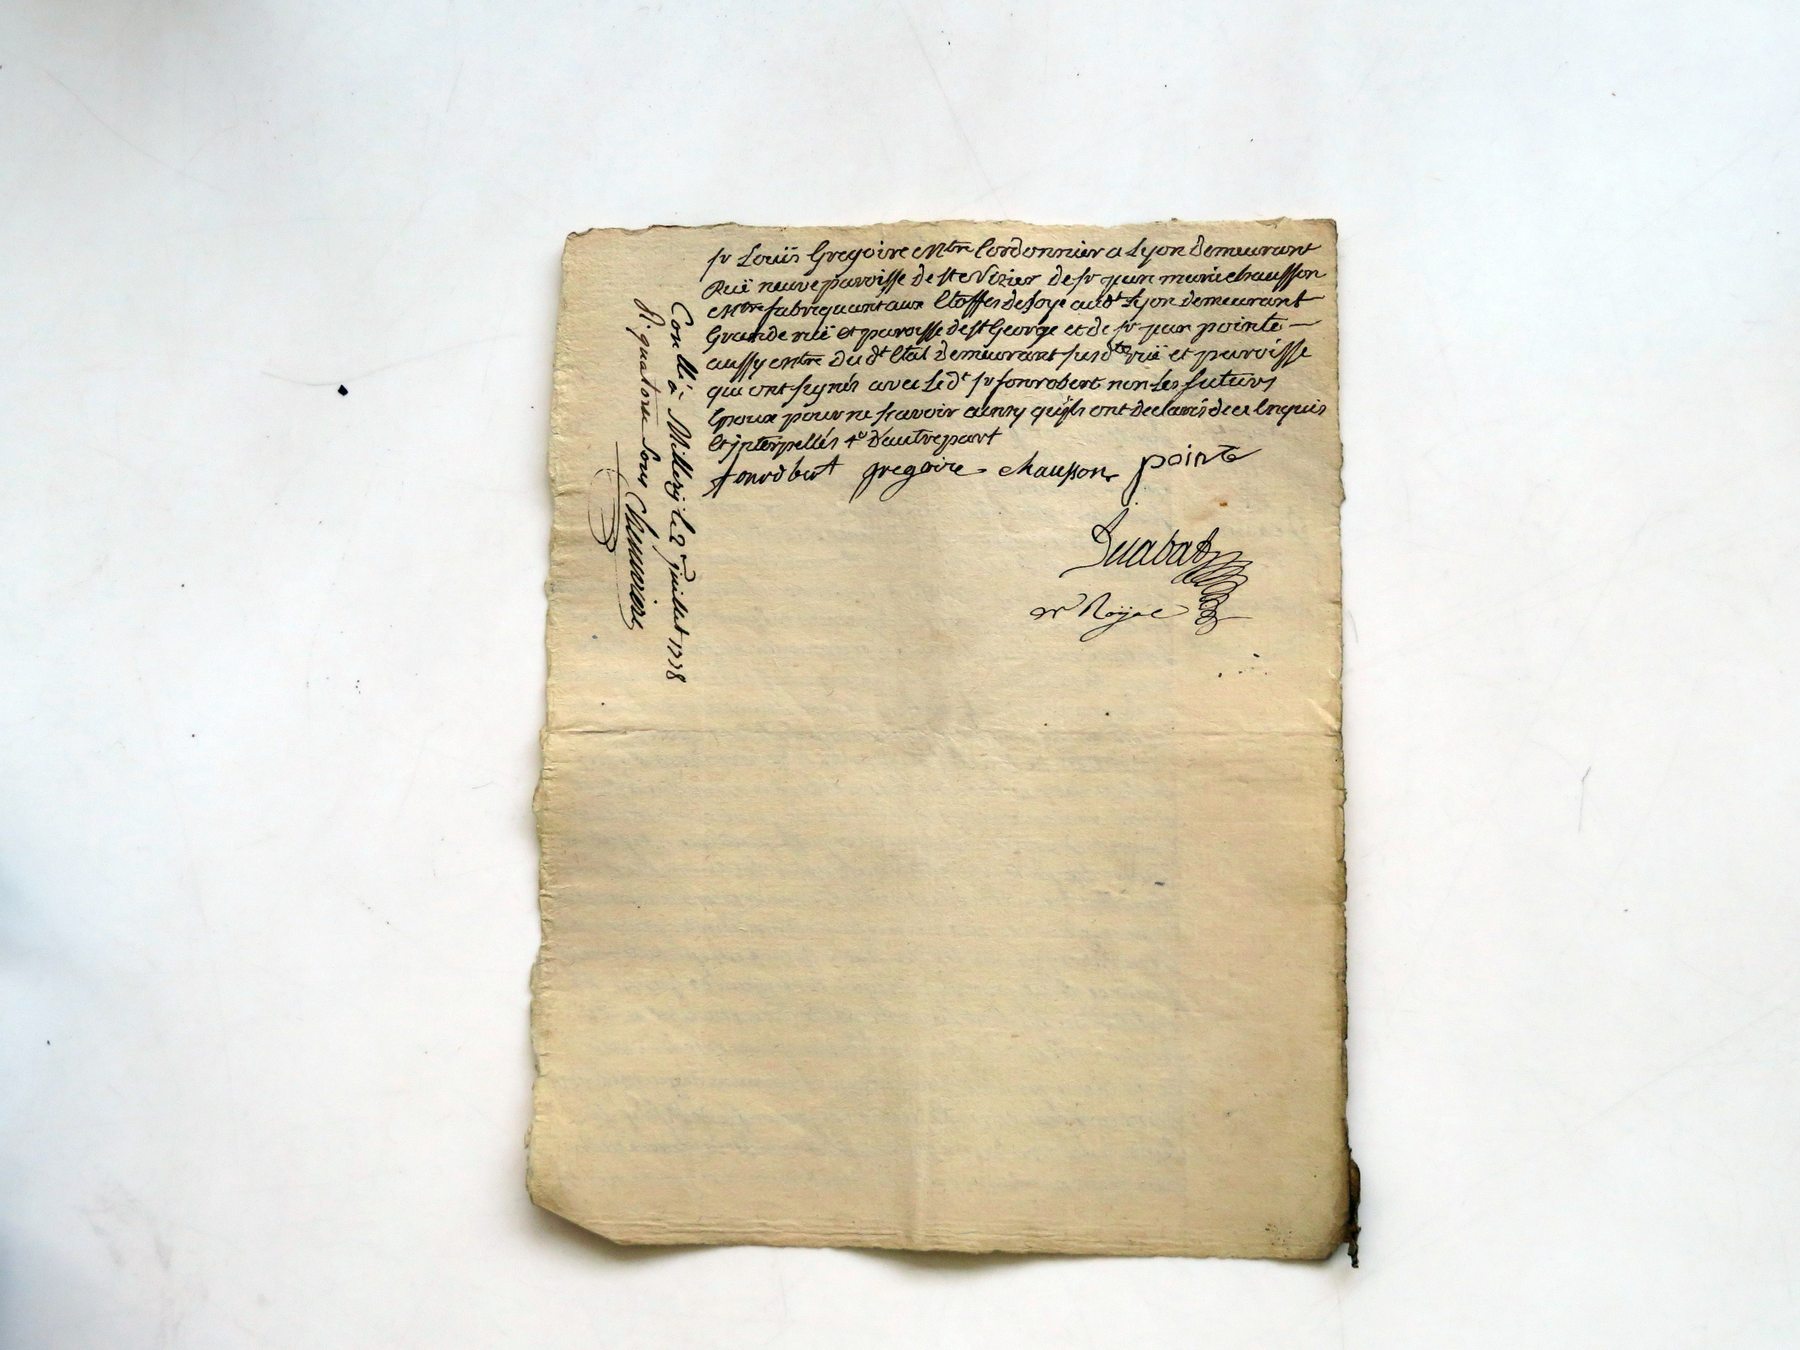 sr Louis Gregoire Mtre Cordonnier a Lyon demeurant
Ruë neuve paroisse de ste Vizier de sr jean marie chausson
Mtre fabriquant aux Etoffes de soye audt Lyon demeurant
Grande ruë et paroisse de st George et de sr jean pointe
aussy Mtre dudt Etat demeurant susdte ruë et paroisse
qui ont signés avec Ledt sr fonrobert non Les futurs
Epoux pour ne scavoir ainsy quïls ont declarés de ce Enquis
Et jnterpellés d'autrepart
fonrobert gregoire chausson pointe
nre Royal
Conllé à Millery le 2e juillet 1738
R. quatorze sous